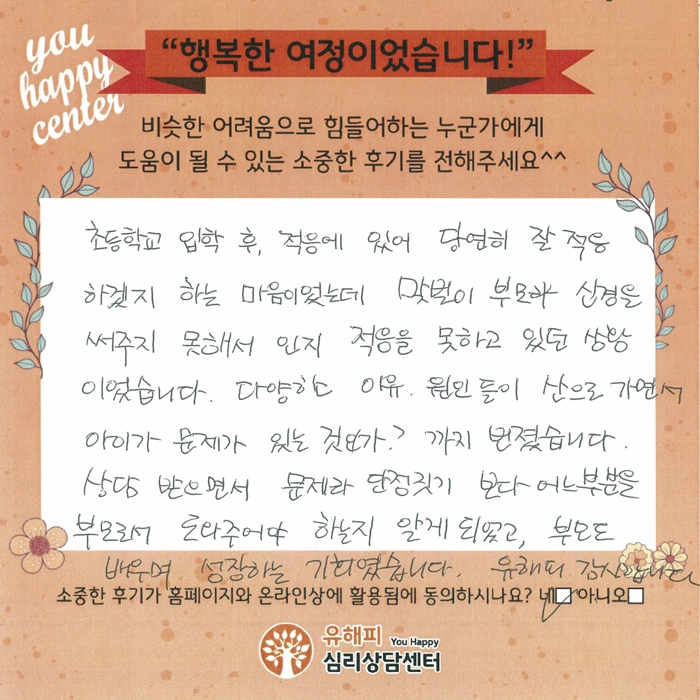 you
happy
center
“행복한 여정이었습니다!”
비슷한 어려움으로 힘들어하는 누군가에게
도움이 될 수 있는 소중한 후기를 전해주세요^^
초등학교 입학 후, 적응에 있어 당연히 잘 적응
하겠지 하는 마음이었는데 맞벌이 부모라 신경을
써주지 못해서 인지 적응을 못하고 있던 상황
이었습니다. 다양한 이유. 원인들이 산으로 가면서
아이가 문제가 있는 것인가? 까지 번졌습니다.
상담 받으면서 문제라 단정짓기 보다 어느부분을
부모로서 도와주어야 하는지 알게 되었고, 부모도
배우며 성장하는 기회였습니다. 유해피 감사합니다.
소중한 후기가 홈페이지와 온라인상에 활용됨에 동의하시나요? 네 아니오
유해피 You Happy
심리상담센터